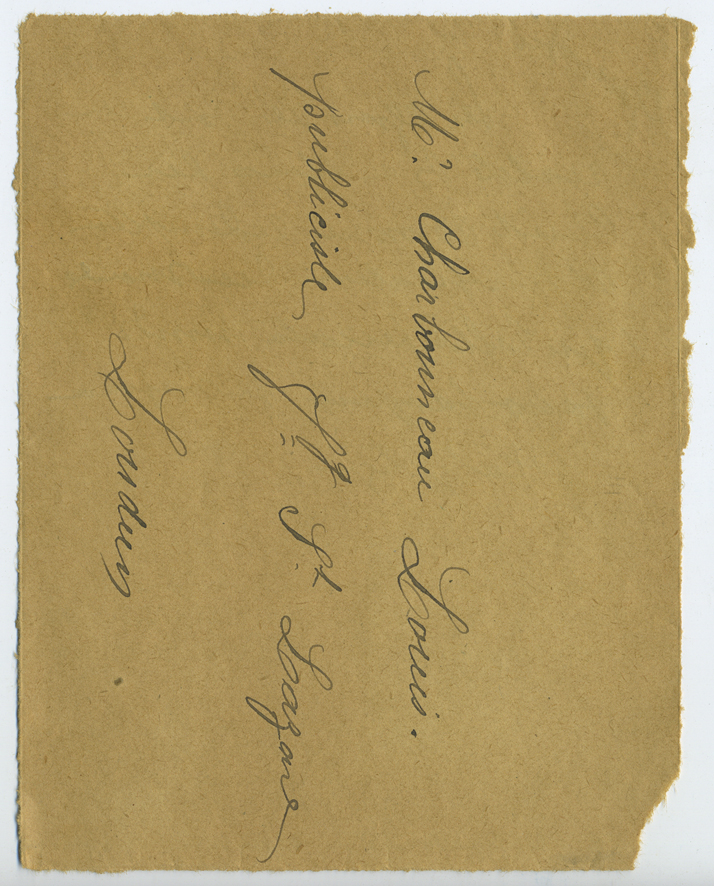 Mr. Charbonneau Louis.
publiciste fg St Lazare
Loudun